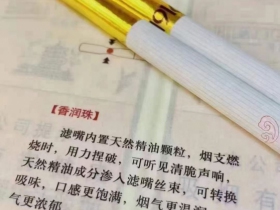 【香润珠】
滤嘴内置天然精油颗粒，烟支燃
烧时，用力捏破，可听见清脆声响，
天然精油成分渗入滤嘴丝束，可转换
吸味，口感更饱满，烟气更温润
气更浓郁